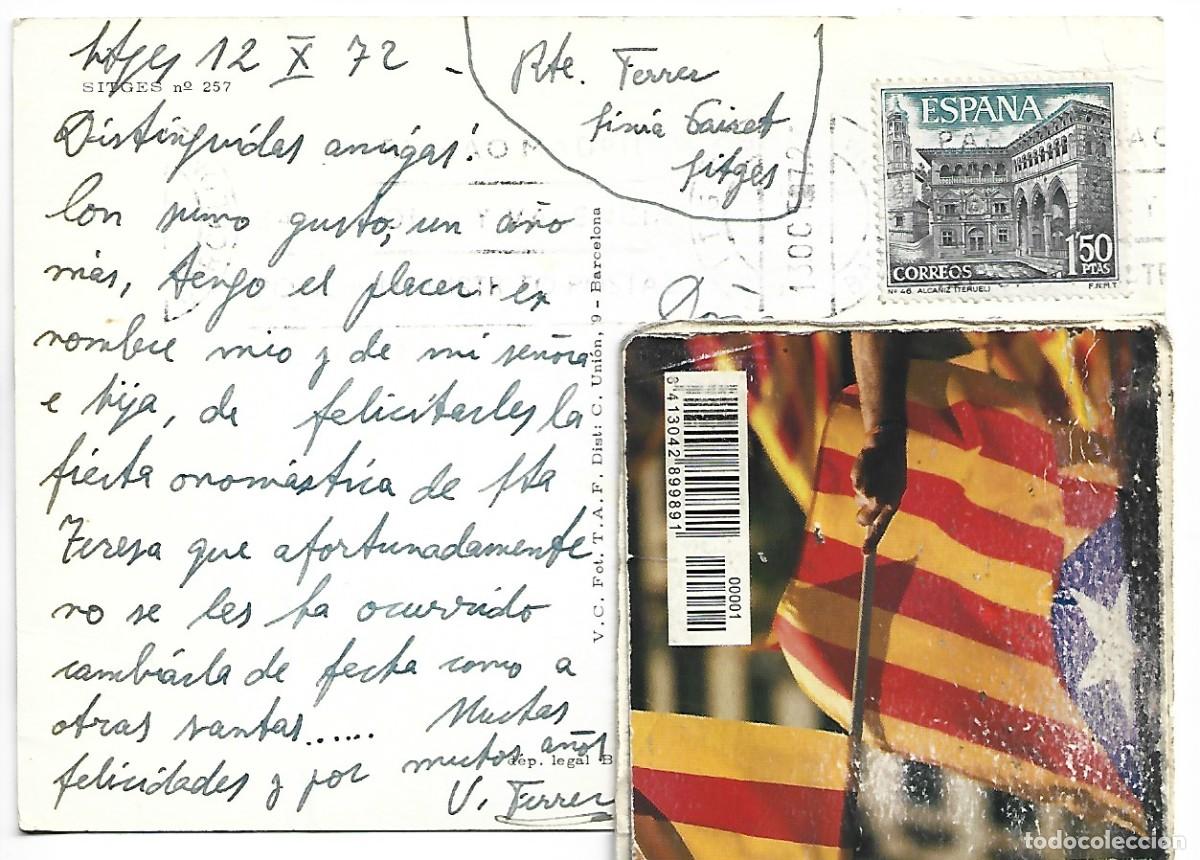 Sitges 12 X 72 -
SITGES nº 257
Distinguidas amigas:
Con sumo gusto, un año
más, tengo el placer en
nombre mio y de mi señora
e hija, de felicitarles la
fiesta onomástica de Sta
Teresa que afortunadamente
no se les ha ocurrido
cambiarla de fecha como a
otras santas...... Muchas
felicidades y por muchos años
V. Ferrer
Rte. Ferrer
Sitges
V. C. Fot. T. A. F. Dist: C. Unión, 9 - Barcelona
dep. legal B
13 OC
ESPAÑA
CORREOS
1'50
PTAS
Nº 46 ALCAÑIZ (TERUEL)
F.N.M.T
8 413042 899891
00001
todocoleccion